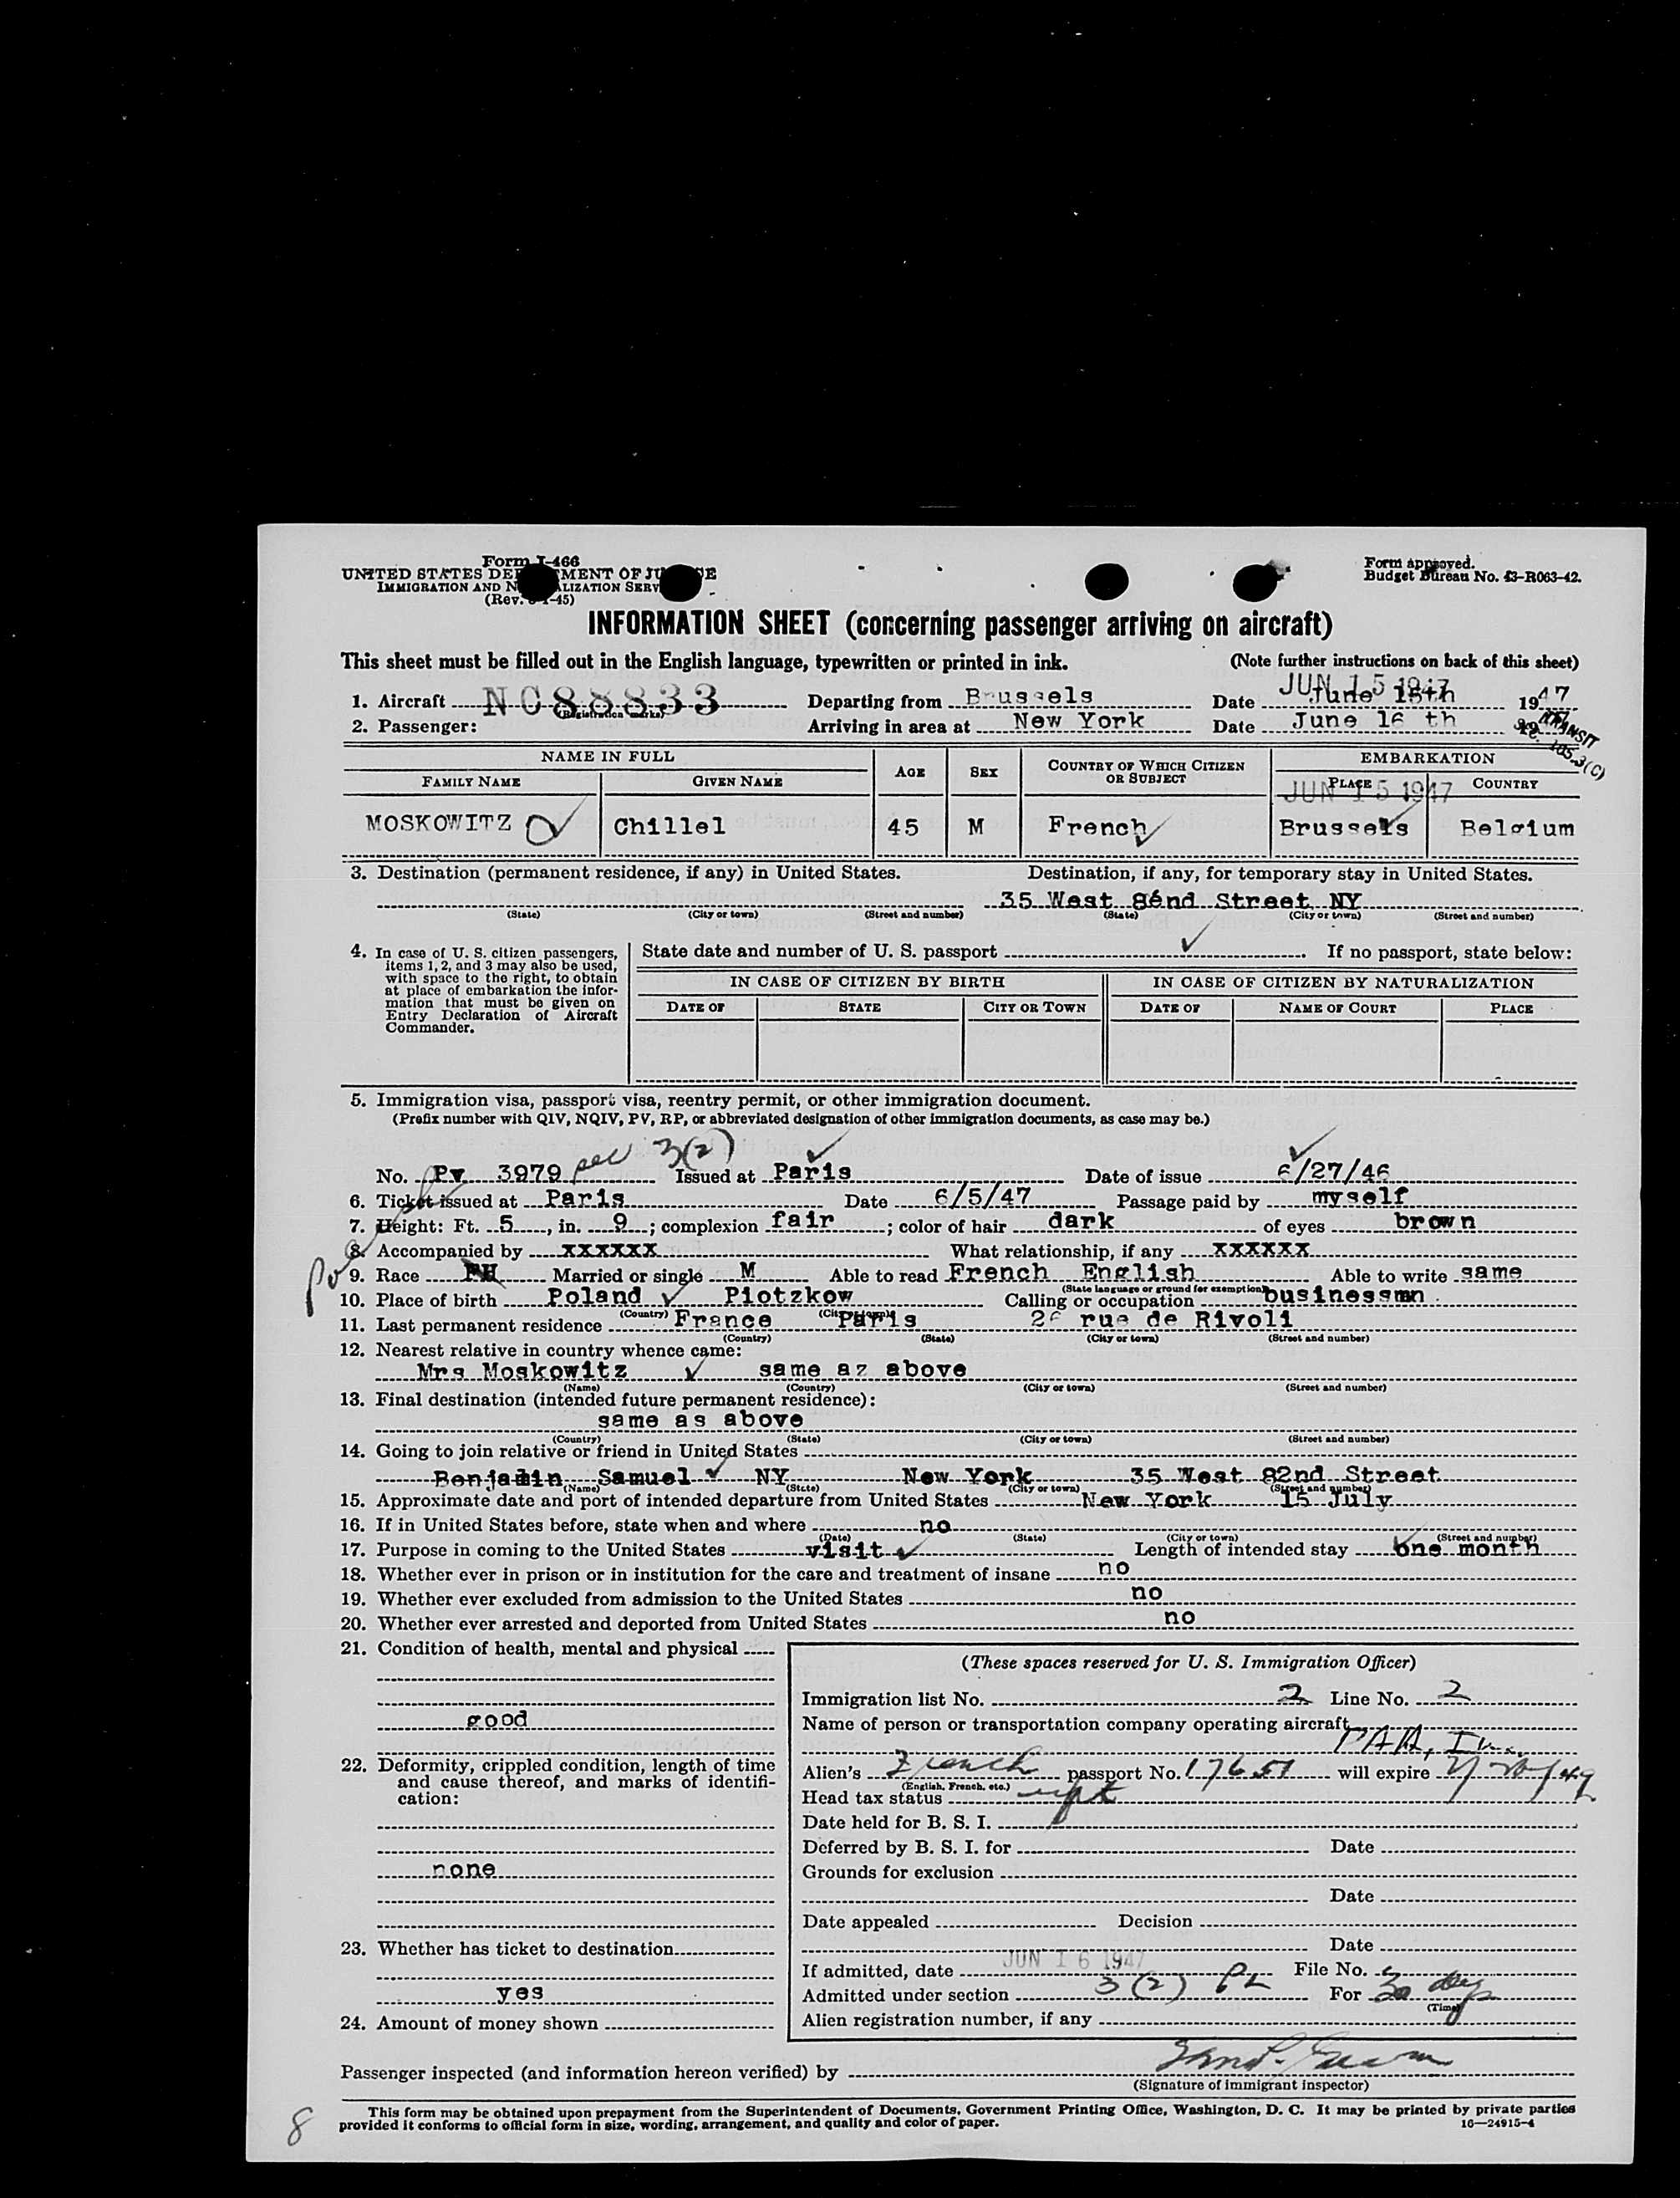 Form I-466
UNITED STATES DEPARTMENT OF JUSTICE
IMMIGRATION AND NATURALIZATION SERVICE
(Rev. -45)
Form approved.
Budget Bureau No. 43-R063-42.
INFORMATION SHEET (concerning passenger arriving on aircraft)
This sheet must be filled out in the English language, typewritten or printed in ink. (Note further instructions on back of this sheet)
JUN 15 1947
1. Aircraft NC88833 (Registration marks) Departing from Brussels Date June 15th 1947
2. Passenger: Arriving in area at New York Date June 16 th
TRANSIT
105.3(C)
NAME IN FULL AGE SEX COUNTRY OF WHICH CITIZEN OR SUBJECT EMBARKATION
FAMILY NAME GIVEN NAME PLACE COUNTRY
JUN 15 1947
MOSKOWITZ Chillel 45 M French Brussels Belgium
3. Destination (permanent residence, if any) in United States. Destination, if any, for temporary stay in United States.
35 West Street NY
(State) (City or town) (Street and number) (State) (City or town) (Street and number)
4. In case of U. S. citizen passengers, items 1, 2, and 3 may also be used, with space to the right, to obtain at place of embarkation the information that must be given on Entry Declaration of Aircraft Commander.
State date and number of U. S. passport If no passport, state below:
IN CASE OF CITIZEN BY BIRTH IN CASE OF CITIZEN BY NATURALIZATION
DATE OF STATE CITY OR TOWN DATE OF NAME OF COURT PLACE
5. Immigration visa, passport visa, reentry permit, or other immigration document.
(Prefix number with QIV, NQIV, PV, RP, or abbreviated designation of other immigration documents, as case may be.)
No. Pv 3979 sec 3(2) Issued at Paris Date of issue 6/27/46
6. Ticket issued at Paris Date 6/5/47 Passage paid by myself
7. Height: Ft. 5, in. 9; complexion fair; color of hair dark of eyes brown
8. Accompanied by xxxxxx What relationship, if any xxxxxx
9. Race Married or single M Able to read French English Able to write same
(State language or ground for exemption)
10. Place of birth Poland Piotzkow Calling or occupation businessmn
(Country) (City or town)
11. Last permanent residence France Paris 26 rue de Rivoli
(Country) (State) (City or town) (Street and number)
12. Nearest relative in country whence came:
Mrs Moskowitz same az above
(Name) (Country) (City or town) (Street and number)
13. Final destination (intended future permanent residence):
same as above
(Country) (State) (City or town) (Street and number)
14. Going to join relative or friend in United States
Benjamin Samuel NY New York 35 West 82nd Street
(Name) (State) (City or town) (Street and number)
15. Approximate date and port of intended departure from United States New York 15 July
16. If in United States before, state when and where no
(Date) (State) (City or town) (Street and number)
17. Purpose in coming to the United States visit Length of intended stay one month
18. Whether ever in prison or in institution for the care and treatment of insane no
19. Whether ever excluded from admission to the United States no
20. Whether ever arrested and deported from United States no
21. Condition of health, mental and physical
good
22. Deformity, crippled condition, length of time and cause thereof, and marks of identification:
none
23. Whether has ticket to destination
yes
24. Amount of money shown
(These spaces reserved for U. S. Immigration Officer)
Immigration list No. 2 Line No. 2
Name of person or transportation company operating aircraft
PAA, Inc.
Alien's French passport No. 17651 will expire
(English, French, etc.)
Head tax status
Date held for B. S. I.
Deferred by B. S. I. for Date
Grounds for exclusion
Date
Date appealed Decision
Date
If admitted, date JUN 16 1947 File No.
Admitted under section 3(2) For 30 days
(Time)
Alien registration number, if any
Passenger inspected (and information hereon verified) by
(Signature of immigrant inspector)
This form may be obtained upon prepayment from the Superintendent of Documents, Government Printing Office, Washington, D. C. It may be printed by private parties
provided it conforms to official form in size, wording, arrangement, and quality and color of paper.
16—24915-4
8